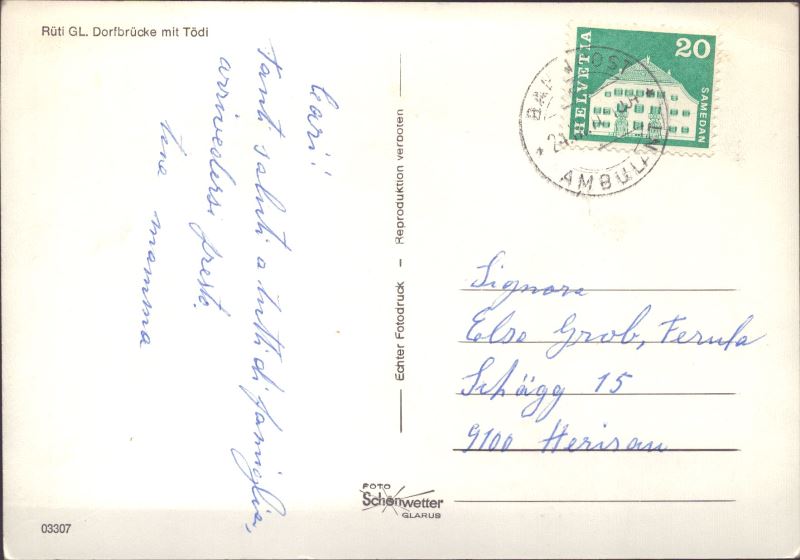 Rüti GL. Dorfbrücke mit Tödi
Cari!
Tanti saluti a tutti di famiglia,
arrivedersi presto.
mamma
Echter Fotodruck – Reproduktion verboten
HELVETIA
20
SAMEDAN
AMBULANT
Signora
Else Grob, Ferula
Schägg 15
9100 Herisau
FOTO
Schönwetter
GLARUS
03307